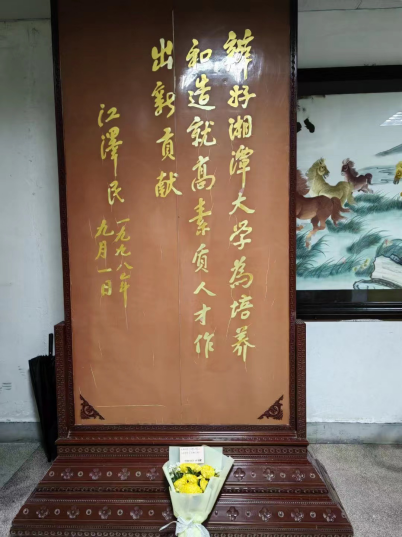 辦好湘潭大学為培养
和造就高素质人才作
出新贡献
江泽民
一九九八年
九月一日